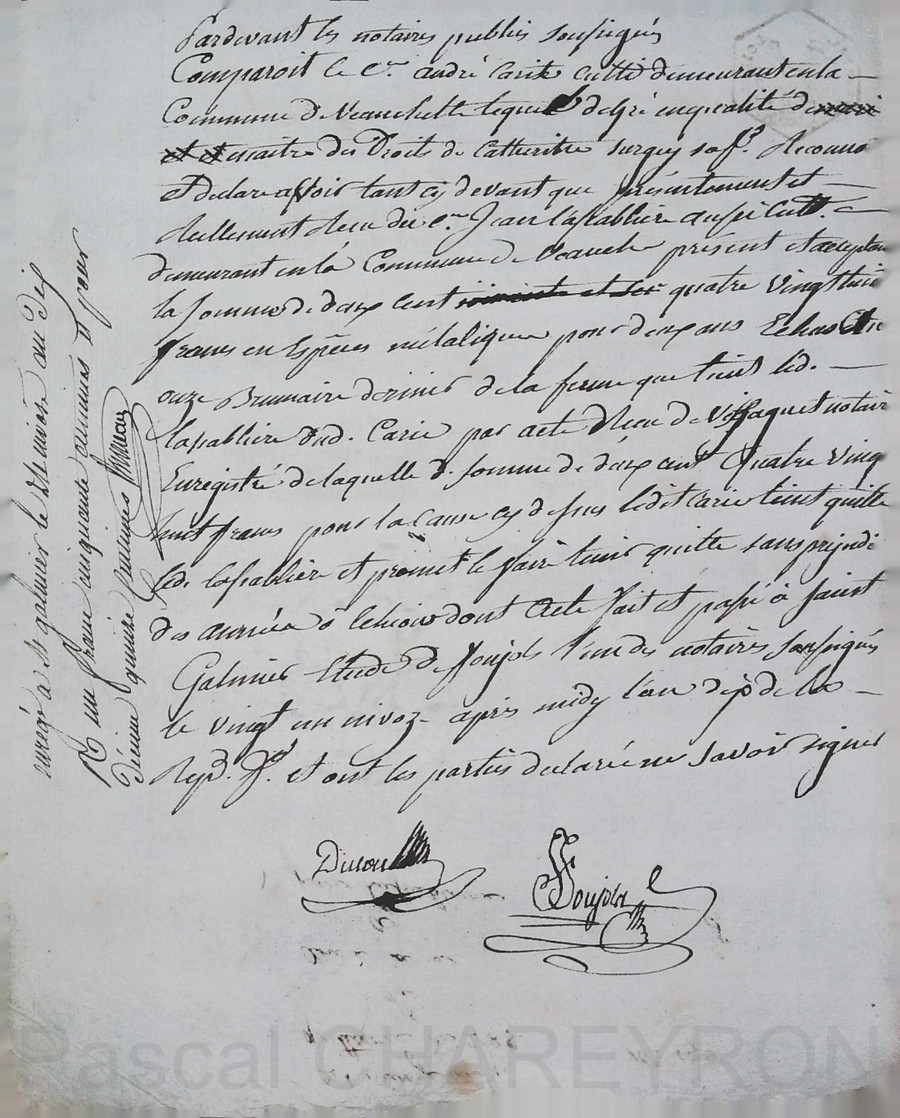 Pardevant les notaires publics soussignés
Comparoit le Cen andré Carie Cultr demeurant en la
Commune de Veauchette lequel de gré en qualité de mari
et maitre des Droits de Catherine sa fe. Reconnu
et declare avoir tant cy devant que présentement et
réellement Receu du Cen Jean Lapablière aussi Cultr.
demeurant en la Commune de Veauche présent et acceptan
la somme de deux cent quatre vingt huit
francs en Espèces métalique pour deux ans Echus le
onze Brumaire dernier de la ferme que tient led.
Lapablière dud. Carie par acte Receu notaire
Enregistré de laquelle d. somme de deux cent Quatre ving
huit francs pour la Cause cy dessus ledit Carie tient quitte
led. Lapablière et promet le faire tenir quitte sans préjudi
des année à echeoir dont Acte fait et passé à Saint
Galmier Etude de Soujols l'un des notaires soussignés
le vingt un nivoz après midy l'an dix de la
Rep. fse. et ont les parties declaré ne savoir signer
enregé à St galmier le nivose an dix
R un franc cinquante centimes et pour
décime quinze Centimes
Soujols
Pascal CHAREYRON